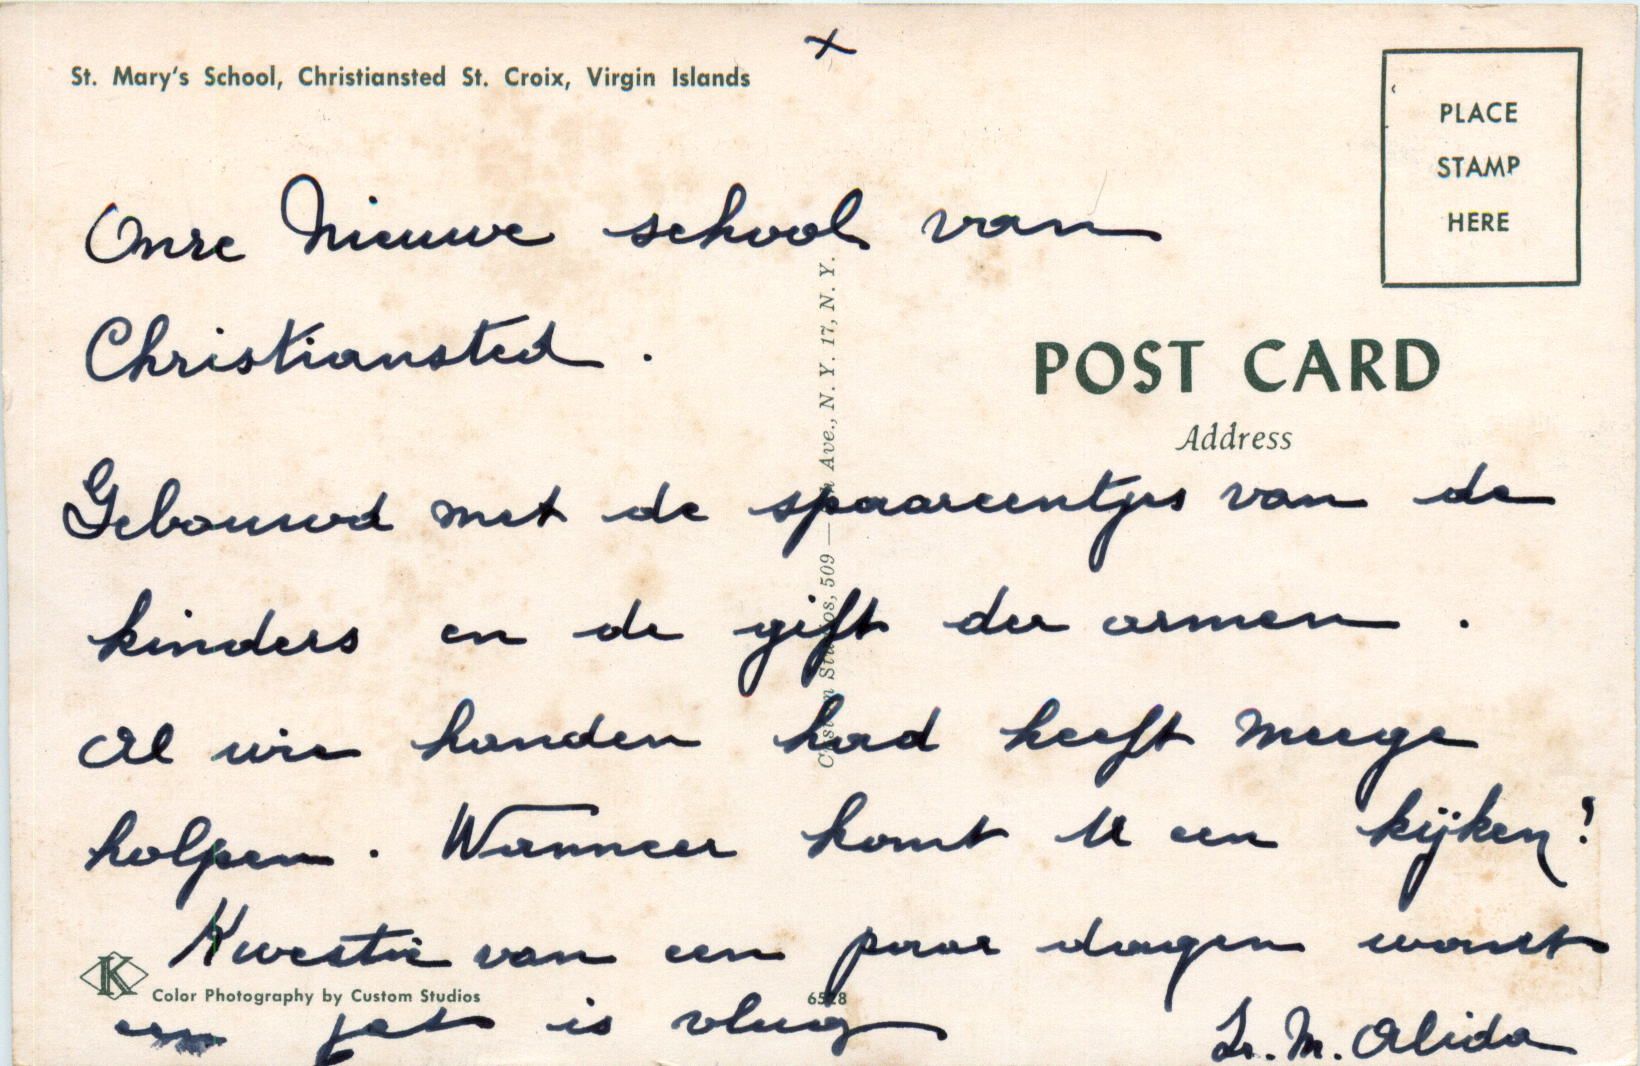 x
St. Mary's School, Christiansted St. Croix, Virgin Islands
PLACE
STAMP
HERE
Onze Nieuwe school van
Christiansted.
POST CARD
Address
Gebouwd met de spaarcentjes van de
kinders en de gift der armen.
Al wie handen had heeft meege
holpen. Wanneer komt U een kijken!
Kwestie van een paar dagen want
een jet is vlug
Sr. M. Alida
K
Color Photography by Custom Studios
6528
Custom Studios, 509 — Ave., N. Y. 17, N. Y.